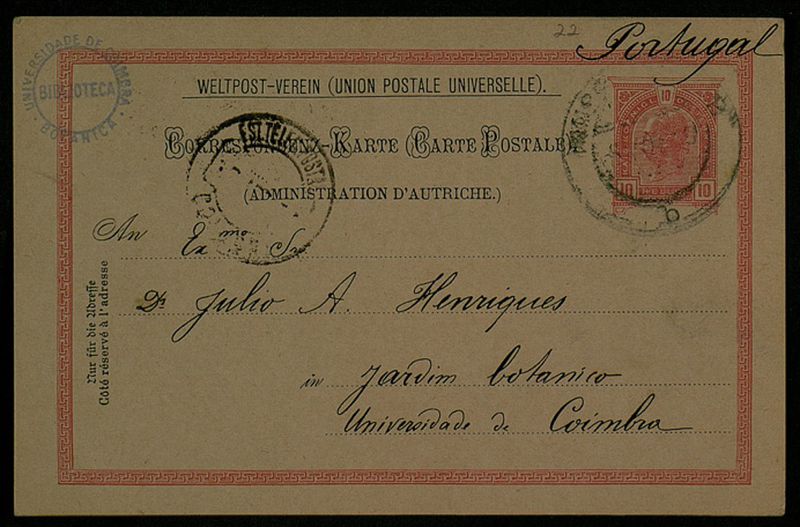 22
Portugal
UNIVERSIDADE DE COIMBRA
BIBLIOTECA
BOTANICA
WELTPOST-VEREIN (UNION POSTALE UNIVERSELLE).
Correspondenz-Karte (Carte Postale)
(ADMINISTRATION D'AUTRICHE.)
10
10 10
An Exmo Sr
Dr Julio A. Henriques
in Jardim botanico
Universidade de Coimbra
Nur für die Adresse
Côté réservé à l'adresse